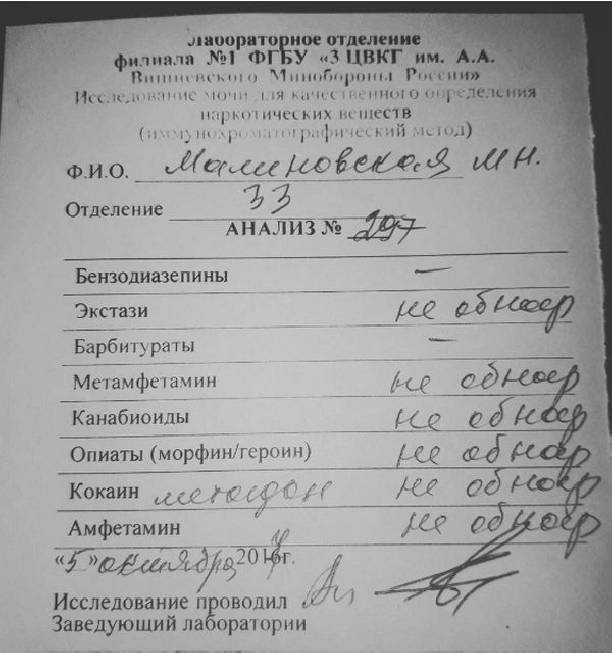 лабораторное отделение
филиала №1 ФГБУ «3 ЦВКГ им. А.А.
Вишневского Минобороны России»
Исследование мочи для качественного определения
наркотических веществ
(иммунохроматографический метод)
Ф.И.О. Малиновская М.Н.
Отделение 33
АНАЛИЗ № 297
Бензодиазепины —
Экстази не обнар
Барбитураты —
Метамфетамин не обнар
Канабиоиды не обнар
Опиаты (морфин/героин) не обнар
Кокаин метадон не обнар
Амфетамин не обнар
«5» октября 2017г.
Исследование проводил
Заведующий лаборатории